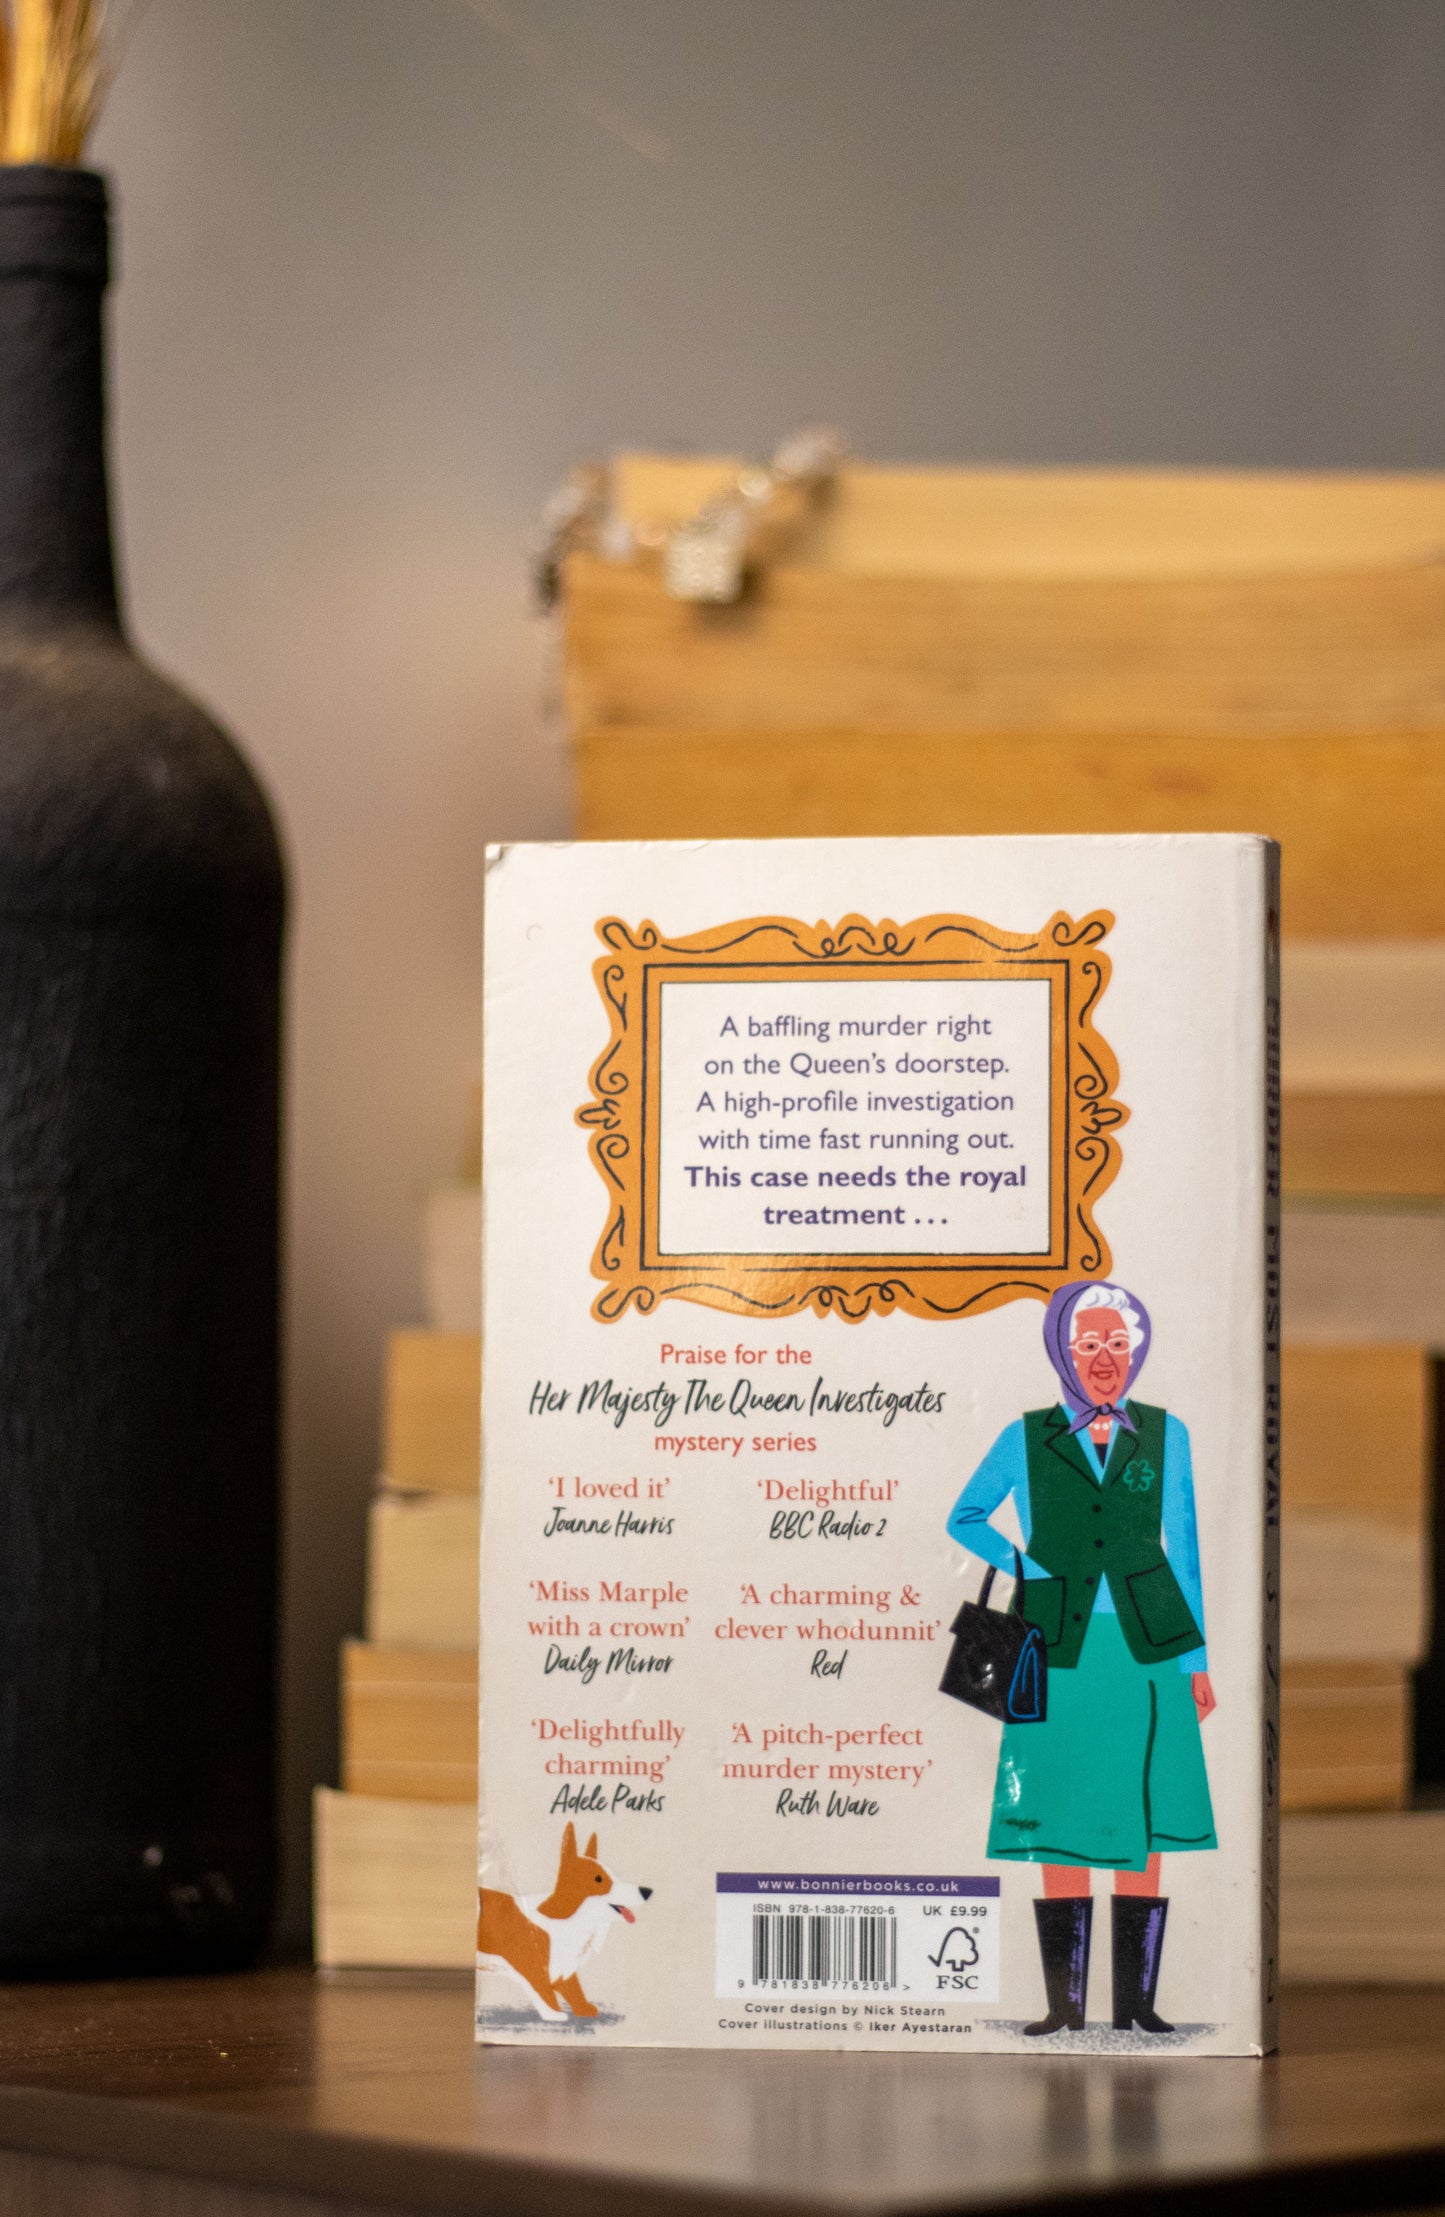 A baffling murder right
on the Queen’s doorstep.
A high-profile investigation
with time fast running out.
This case needs the royal
treatment . . .
Praise for the
Her Majesty The Queen Investigates
mystery series
‘I loved it’
Joanne Harris
‘Delightful’
BBC Radio 2
‘Miss Marple
with a crown’
Daily Mirror
‘A charming &
clever whodunnit’
Red
‘Delightfully
charming’
Adele Parks
‘A pitch-perfect
murder mystery’
Ruth Ware
www.bonnierbooks.co.uk
ISBN 978-1-838-77620-6
UK £9.99
9 781838 776206 >
FSC
®
Cover design by Nick Stearn
Cover illustrations © Iker Ayestaran
MURDER MOST ROYAL